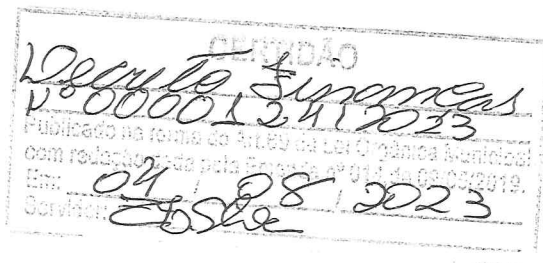 CERTIDÃO
Decreto Financeas
Nº 0000124/2023
Publicado na forma do Art.69 da Lei Orgânica Municipal
com redação dada pela
Em: 04 / 08 / 2023
Servidor: